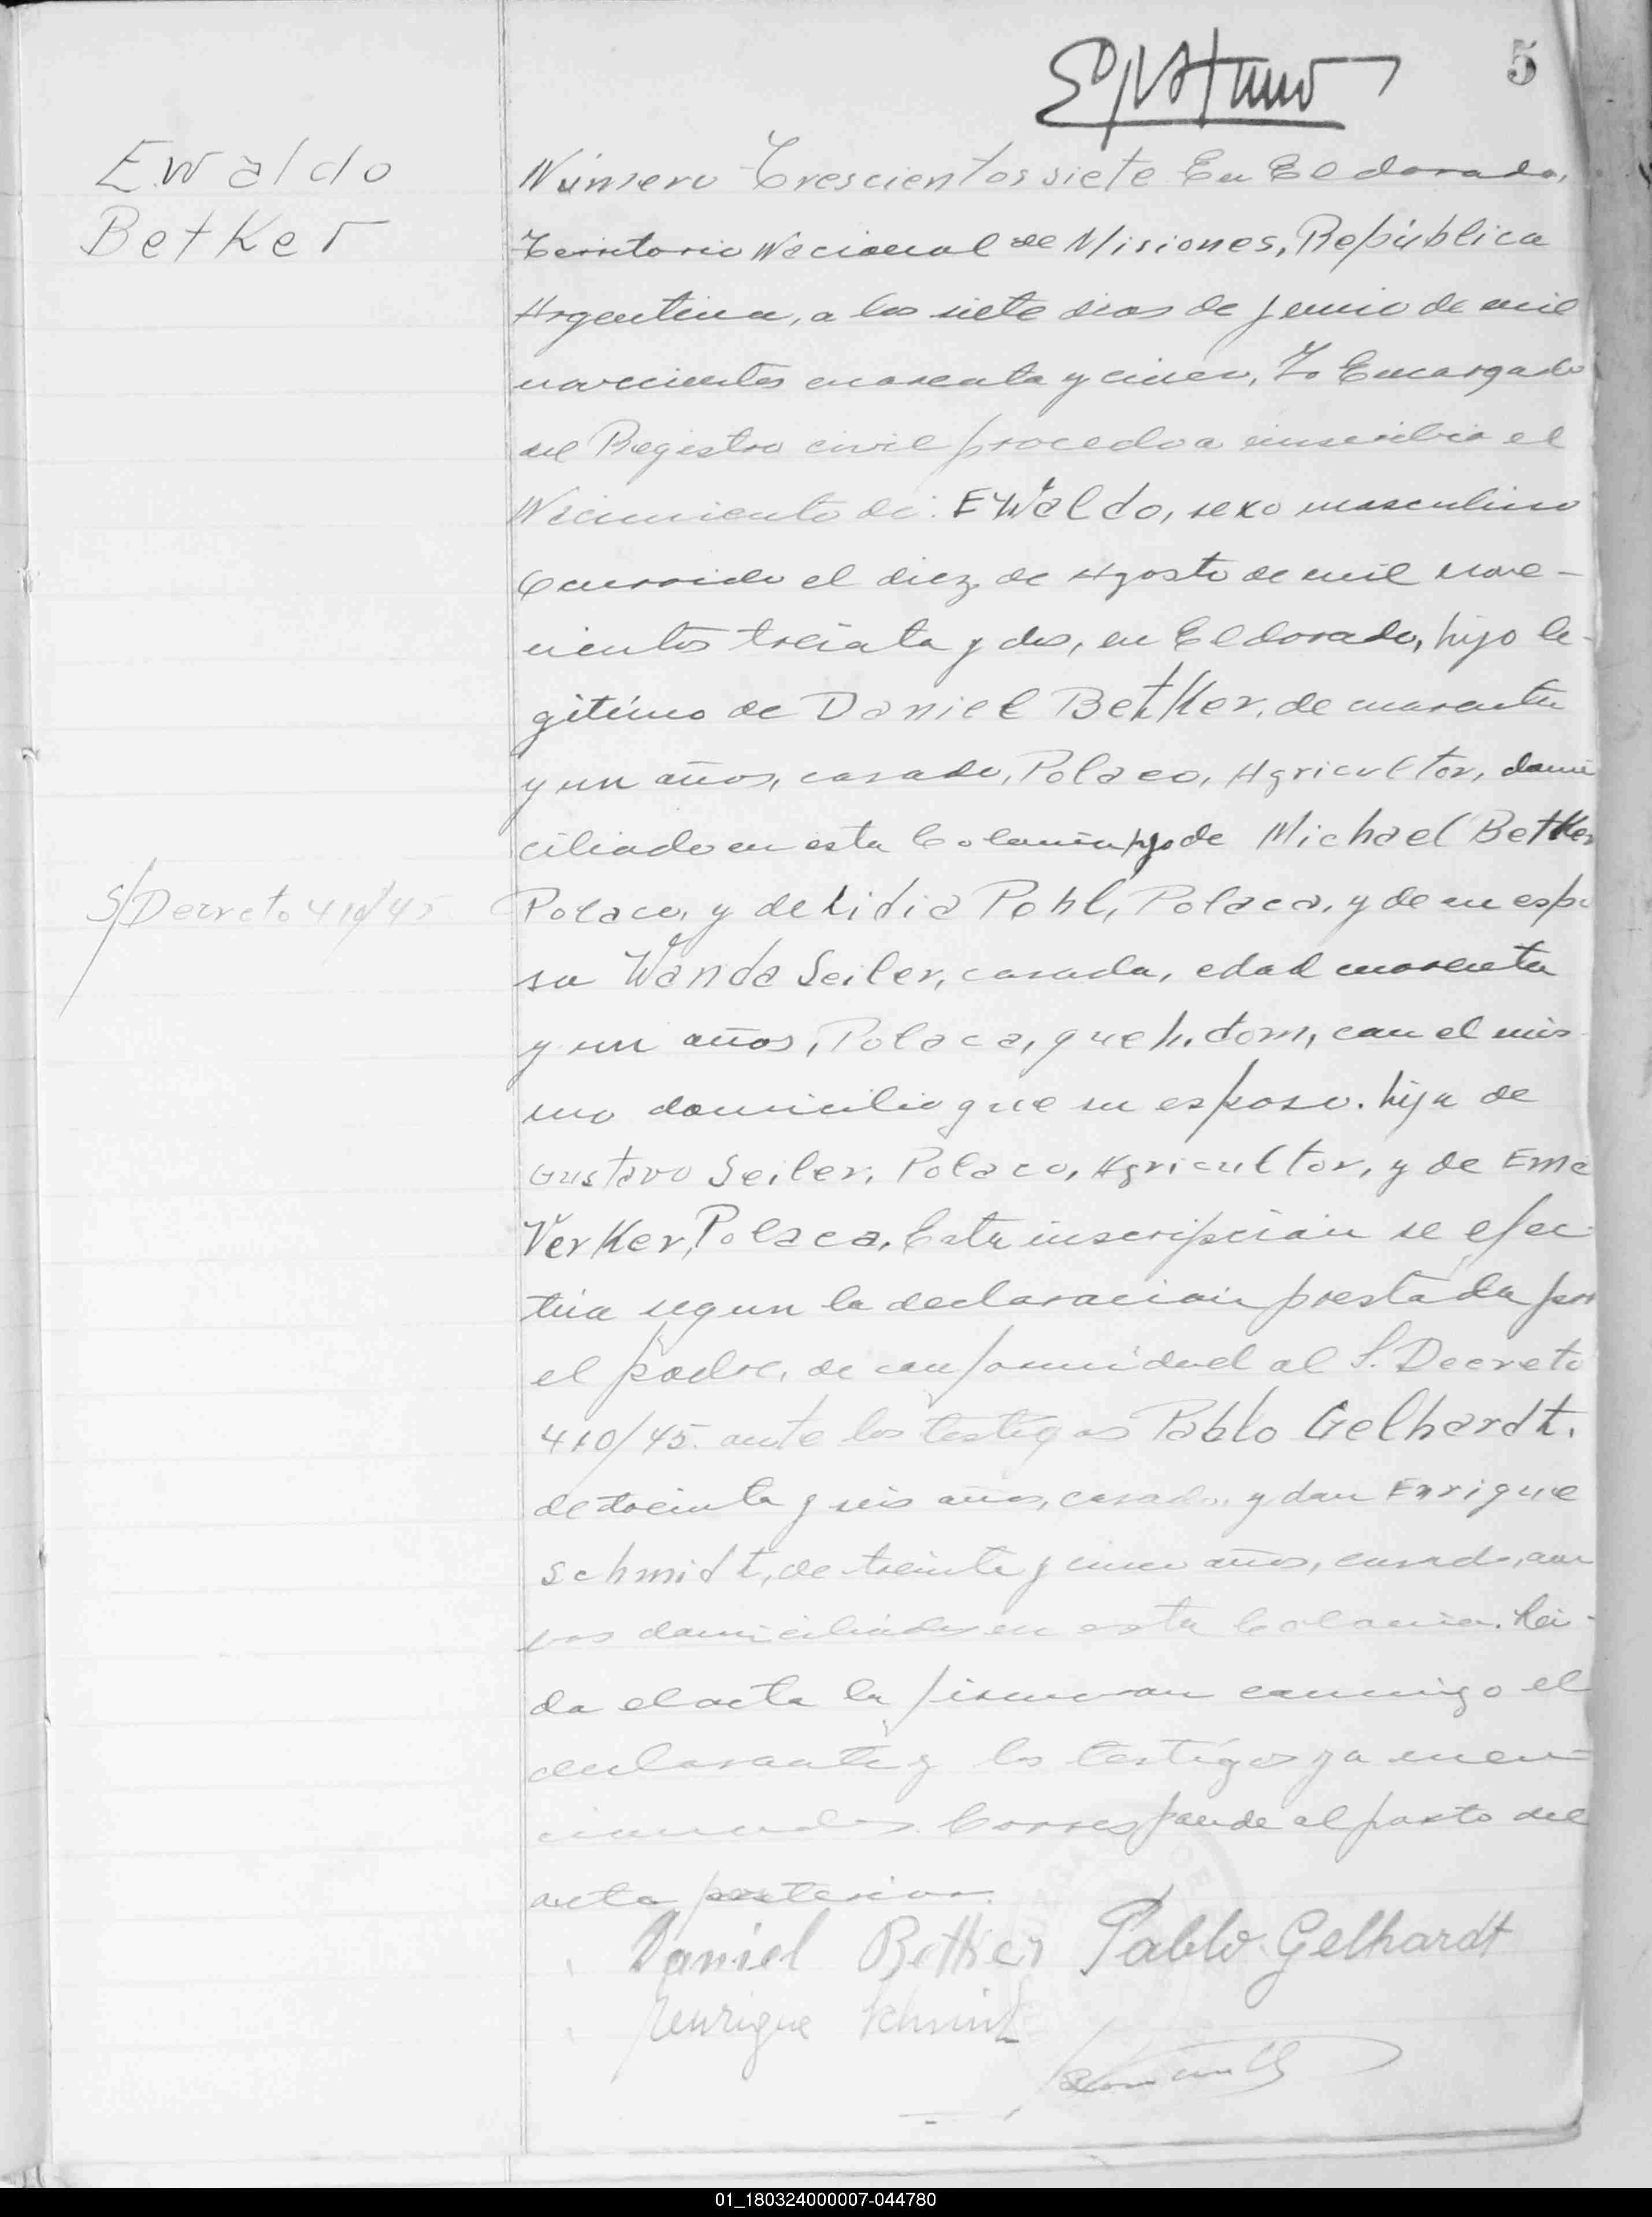 5
Ewaldo
Betker
Número Trescientos siete En Eldorado,
Territorio Nacional de Misiones, República
Argentina, a los siete dias de Junio de mil
novecientos cuarenta y cinco, Yo Encargado
del Registro civil procedo a inscribir el
Nacimiento de: EWaldo, sexo masculino
Ocurrido el diez de Agosto de mil nove-
cientos treinta y dos, en Eldorado, hijo le-
gitimo de Daniel Betker, de cuarenta
y un años, casado, Polaco, Agricultor, domi
ciliado en esta Colonia, hijo de Michael Betker
Polaco, y de Lidia Pohl, Polaca, y de su espo
S/Decreto 410/45
sa Wanda Seiler, casada, edad cuarenta
y un años, Polaca, que h. dom, con el mis
mo domicilio que su esposo. hija de
Gustavo Seiler, Polaco, Agricultor, y de Ema
Verker, Polaca, Esta inscripción se efec
túa segun la declaracion prestada por
el padre, de conformidad al S. Decreto
410/45. ante los testigos Pablo Gelhardt.
de treinta y seis años, casado, y don Enrique
Schmidt, de treinta y cinco años, casado, am
bos domiciliados en esta Colonia. Lei-
da el acta la firmaron conmigo el
declarante y los testigos ya men-
cionados. Corresponde al parto del
acta posterior.
Daniel Bettker Pablo Gelhardt
Henrique Schmidt
01_180324000007-044780